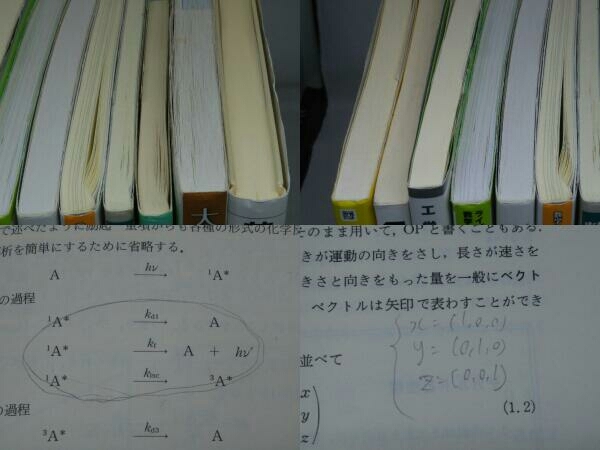 大
工学
で述べたように励起
重項からも各種の形式の化学
析を簡単にするために省略する.
A hν → ¹A*
の過程
¹A* k_d1 → A
¹A* k_f → A + hν'
¹A* k_isc → ³A*
の過程
³A* k_d3 → A
そのまま用いて, OPと書くこともある.
きが運動の向きをさし, 長さが速さを
きさと向きをもった量を一般にベクト
ベクトルは矢印で表わすことができ
x = (1,0,0)
並べて
y = (0,1,0)
z = (0,0,1)
x
y
z
(1.2)